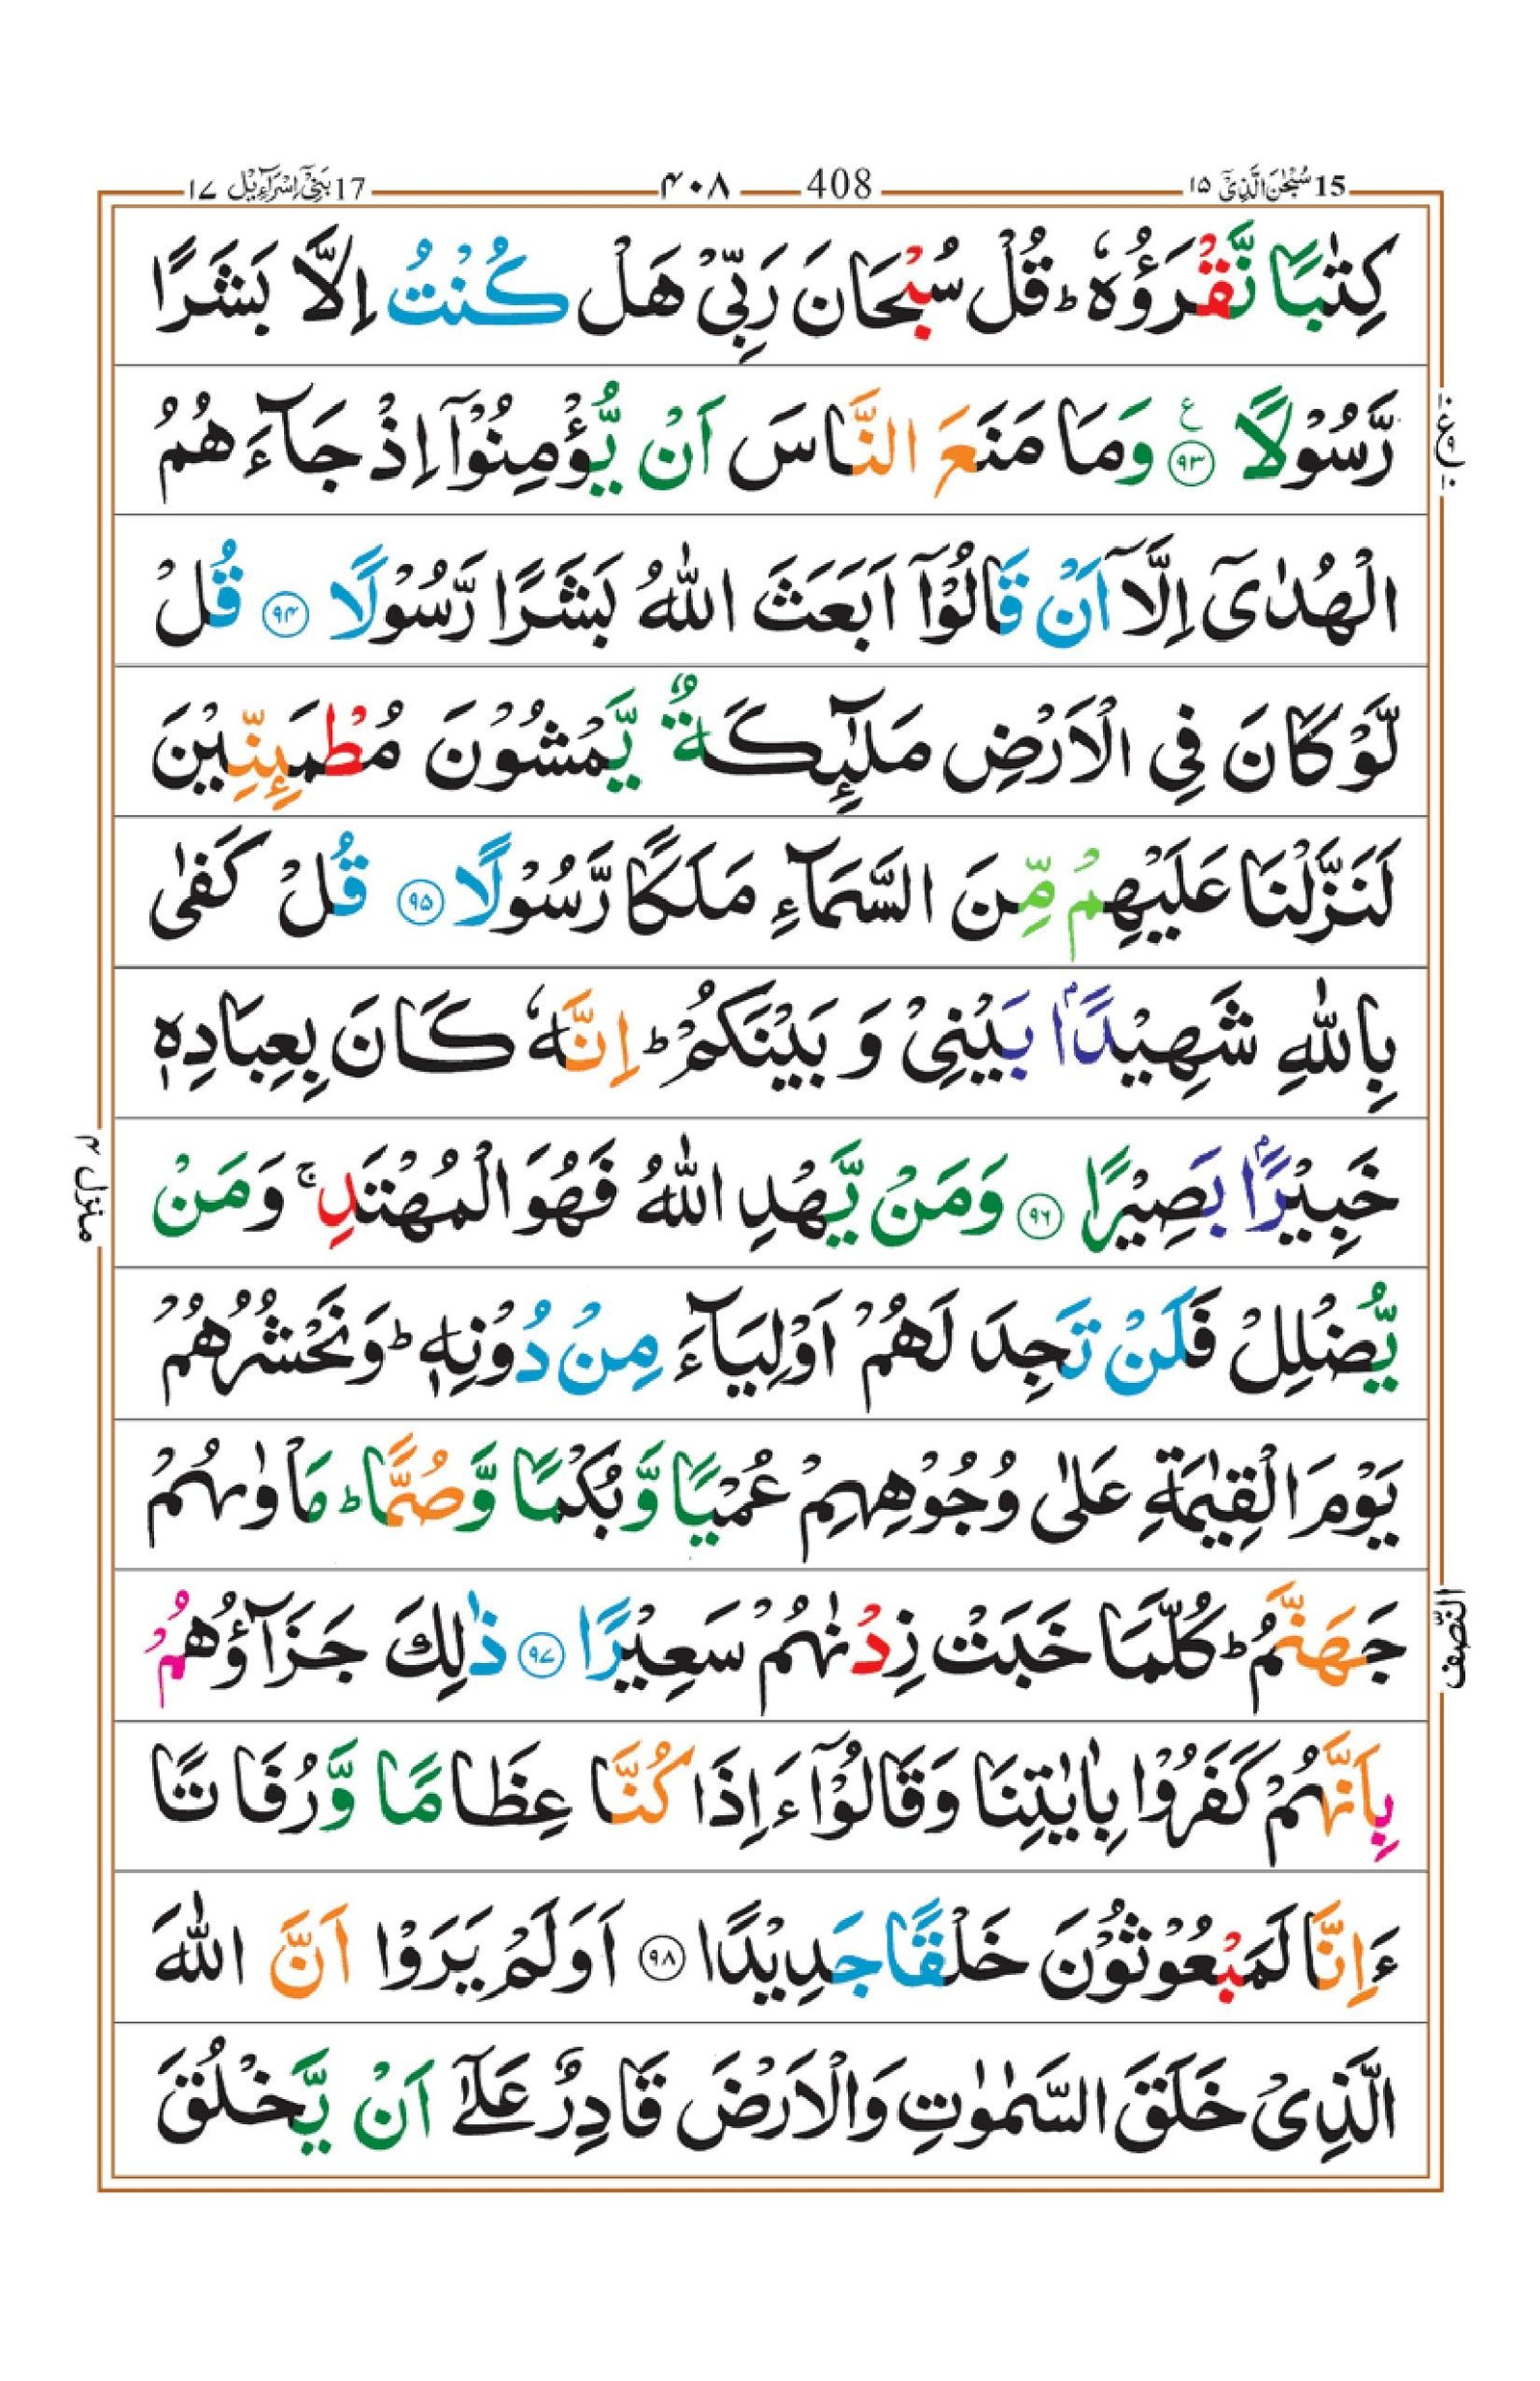 15 سُبْحٰنَ الَّذِیْۤ ۱۵
408 ۴۰۸
17 بَنِیْۤ اِسْرَآءِیْل ۱۷
كِتٰبًا نَّقْرَؤُهٗ ؕ قُلْ سُبْحَانَ رَبِّیْ هَلْ كُنْتُ اِلَّا بَشَرًا
رَّسُوْلًا ۹۳ ع وَمَا مَنَعَ النَّاسَ اَنْ یُّؤْمِنُوْۤا اِذْ جَآءَهُمُ
الْهُدٰۤی اِلَّاۤ اَنْ قَالُوْۤا اَبَعَثَ اللّٰهُ بَشَرًا رَّسُوْلًا ۹۴ قُلْ
لَّوْ كَانَ فِی الْاَرْضِ مَلٰٓئِكَةٌ یَّمْشُوْنَ مُطْمَئِنِّیْنَ
لَنَزَّلْنَا عَلَیْهِمْ مِّنَ السَّمَآءِ مَلَكًا رَّسُوْلًا ۹۵ قُلْ كَفٰی
بِاللّٰهِ شَهِیْدًۢا بَیْنِیْ وَ بَیْنَكُمْ ؕ اِنَّهٗ كَانَ بِعِبَادِهٖ
خَبِیْرًۢا بَصِیْرًا ۹۶ وَمَنْ یَّهْدِ اللّٰهُ فَهُوَ الْمُهْتَدِ ۚ وَمَنْ
یُّضْلِلْ فَلَنْ تَجِدَ لَهُمْ اَوْلِیَآءَ مِنْ دُوْنِهٖ ؕ وَنَحْشُرُهُمْ
یَوْمَ الْقِیٰمَةِ عَلٰی وُجُوْهِهِمْ عُمْیًا وَّبُكْمًا وَّصُمًّا ؕ مَاْوٰىهُمْ
جَهَنَّمُ ؕ كُلَّمَا خَبَتْ زِدْنٰهُمْ سَعِیْرًا ۹۷ ذٰلِكَ جَزَآؤُهُمْ
بِاَنَّهُمْ كَفَرُوْا بِاٰیٰتِنَا وَقَالُوْۤا ءَاِذَا كُنَّا عِظَامًا وَّرُفَاتًا
ءَاِنَّا لَمَبْعُوْثُوْنَ خَلْقًا جَدِیْدًا ۹۸ اَوَلَمْ یَرَوْا اَنَّ اللّٰهَ
الَّذِیْ خَلَقَ السَّمٰوٰتِ وَالْاَرْضَ قَادِرٌ عَلٰۤی اَنْ یَّخْلُقَ
منزل ۴
النّصف